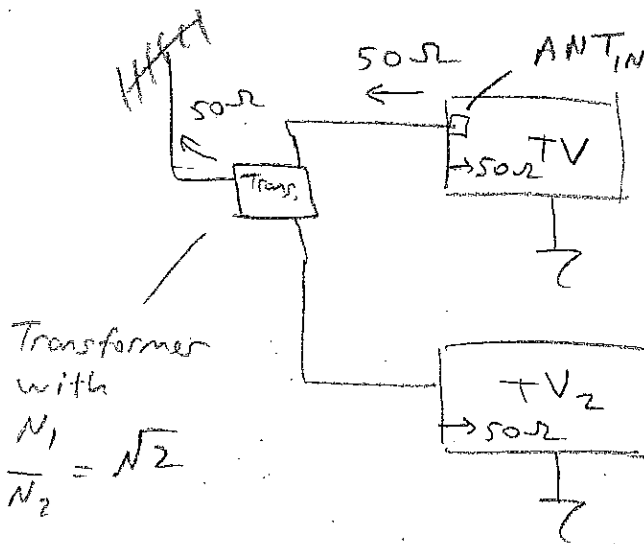 50Ω
ANT_IN
50Ω
TV
→50Ω
Trans.
Transformer
with
N₁/N₂ = √2
TV₂
→50Ω